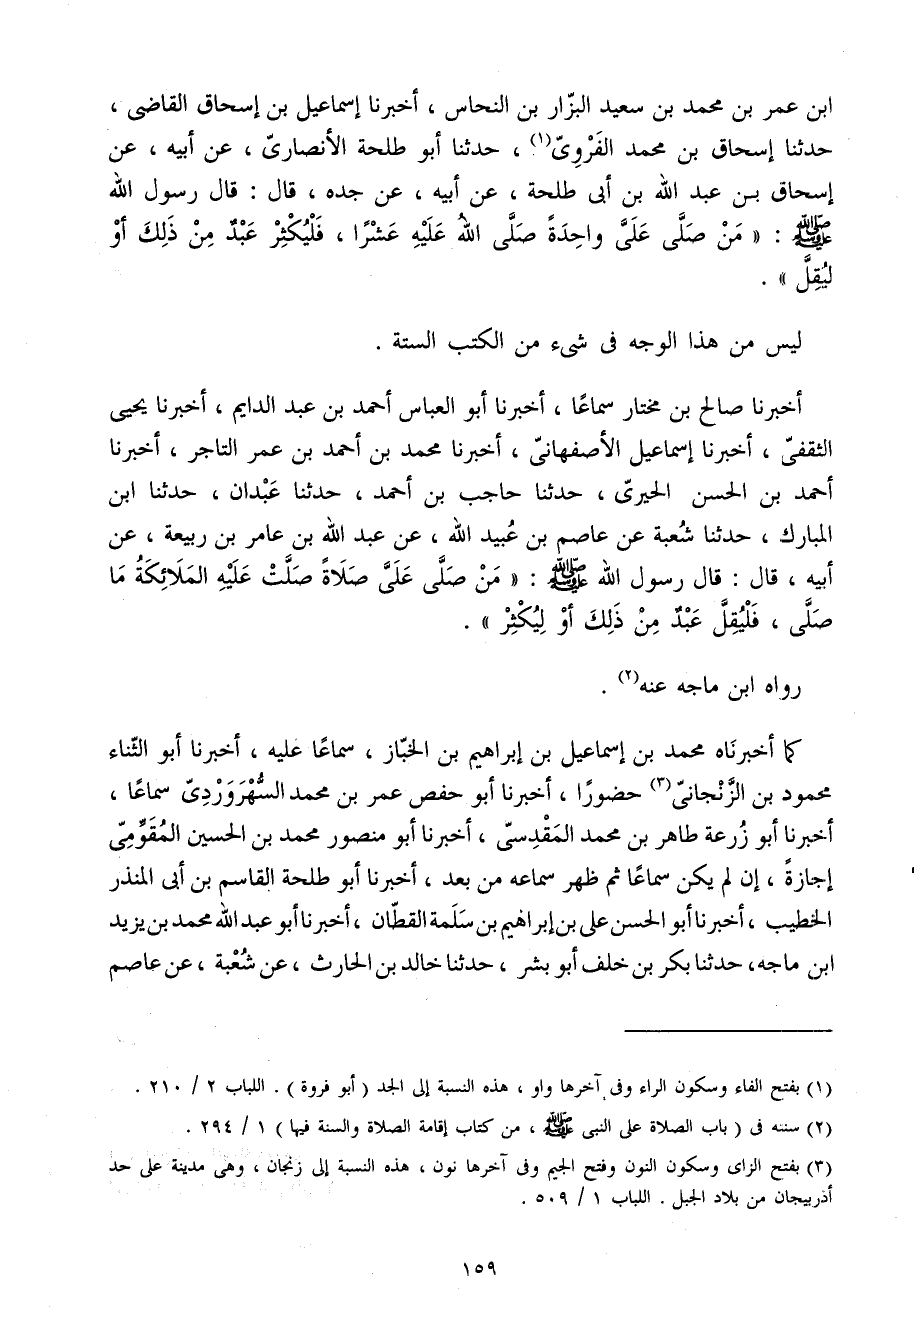 ابن عمر بن محمد بن سعيد البزّار بن النحاس ، أخبرنا إسماعيل بن إسحاق القاضى ،
حدثنا إسحاق بن محمد الفَرْوِىّ(١) ، حدثنا أبو طلحة الأنصارىّ ، عن أبيه ، عن
إسحاق بـن عبد الله بن أبى طلحة ، عن أبيه ، عن جده ، قال : قال رسول الله
ﷺ : « مَنْ صَلَّى عَلَىَّ واحِدَةً صَلَّى اللهُ عَلَيْهِ عَشْرًا ، فَلْيُكْثِرْ عَبْدٌ مِنْ ذَلِكَ أوْ
لِيُقِلَّ » .
ليس من هذا الوجه فى شىء من الكتب الستة .
أخبرنا صالح بن مختار سماعًا ، أخبرنا أبو العباس أحمد بن عبد الدايم ، أخبرنا يحيى
الثقفىّ ، أخبرنا إسماعيل الأصفهانىّ ، أخبرنا محمد بن أحمد بن عمر التاجر ، أخبرنا
أحمد بن الحسن الحيرىّ ، حدثنا حاجب بن أحمد ، حدثنا عَبْدان ، حدثنا ابن
المبارك ، حدثنا شُعبة عن عاصم بن عُبيد الله ، عن عبد الله بن عامر بن ربيعة ، عن
أبيه ، قال : قال رسول الله ﷺ : « مَنْ صَلَّى عَلَىَّ صَلَاةً صَلَّتْ عَلَيْهِ المَلَائِكَةُ مَا
صَلَّى ، فَلْيُقِلَّ عَبْدٌ مِنْ ذَلِكَ أوْ لِيُكْثِرْ » .
رواه ابن ماجه عنه(٢) .
كما أخبرنَاه محمد بن إسماعيل بن إبراهيم بن الخبّاز ، سماعًا عليه ، أخبرنا أبو الثّناء
محمود بن الزَّنْجانىّ(٣) حضورًا ، أخبرنا أبو حفص عمر بن محمد السُّهْرَوَرْدِىّ سماعًا ،
أخبرنا أبو زُرعة طاهر بن محمد المَقْدِسىّ ، أخبرنا أبو منصور محمد بن الحسين المُقَوِّمِىّ
إجازةً ، إن لم يكن سماعًا ثم ظهر سماعه من بعد ، أخبرنا أبو طلحة القاسم بن أبى المنذر
الخطيب ، أخبرنا أبو الحسن على بن إبراهيم بن سَلَمة القطّان ، أخبرنا أبو عبد الله محمد بن يزيد
ابن ماجه، حدثنا بكر بن خلف أبو بشر ، حدثنا خالد بن الحارث ، عن شُعْبة ، عن عاصم
(١) بفتح الفاء وسكون الراء وفى آخرها واو ، هذه النسبة إلى الجد ( أبو فروة ) . اللباب ٢ / ٢١٠ .
(٢) سننه فى ( باب الصلاة على النبى ﷺ ، من كتاب إقامة الصلاة والسنة فيها ) ١ / ٢٩٤ .
(٣) بفتح الزاى وسكون النون وفتح الجيم وفى آخرها نون ، هذه النسبة إلى زنجان ، وهى مدينة على حد
أذربيجان من بلاد الجبل . اللباب ١ / ٥٠٩ .
١٥٩